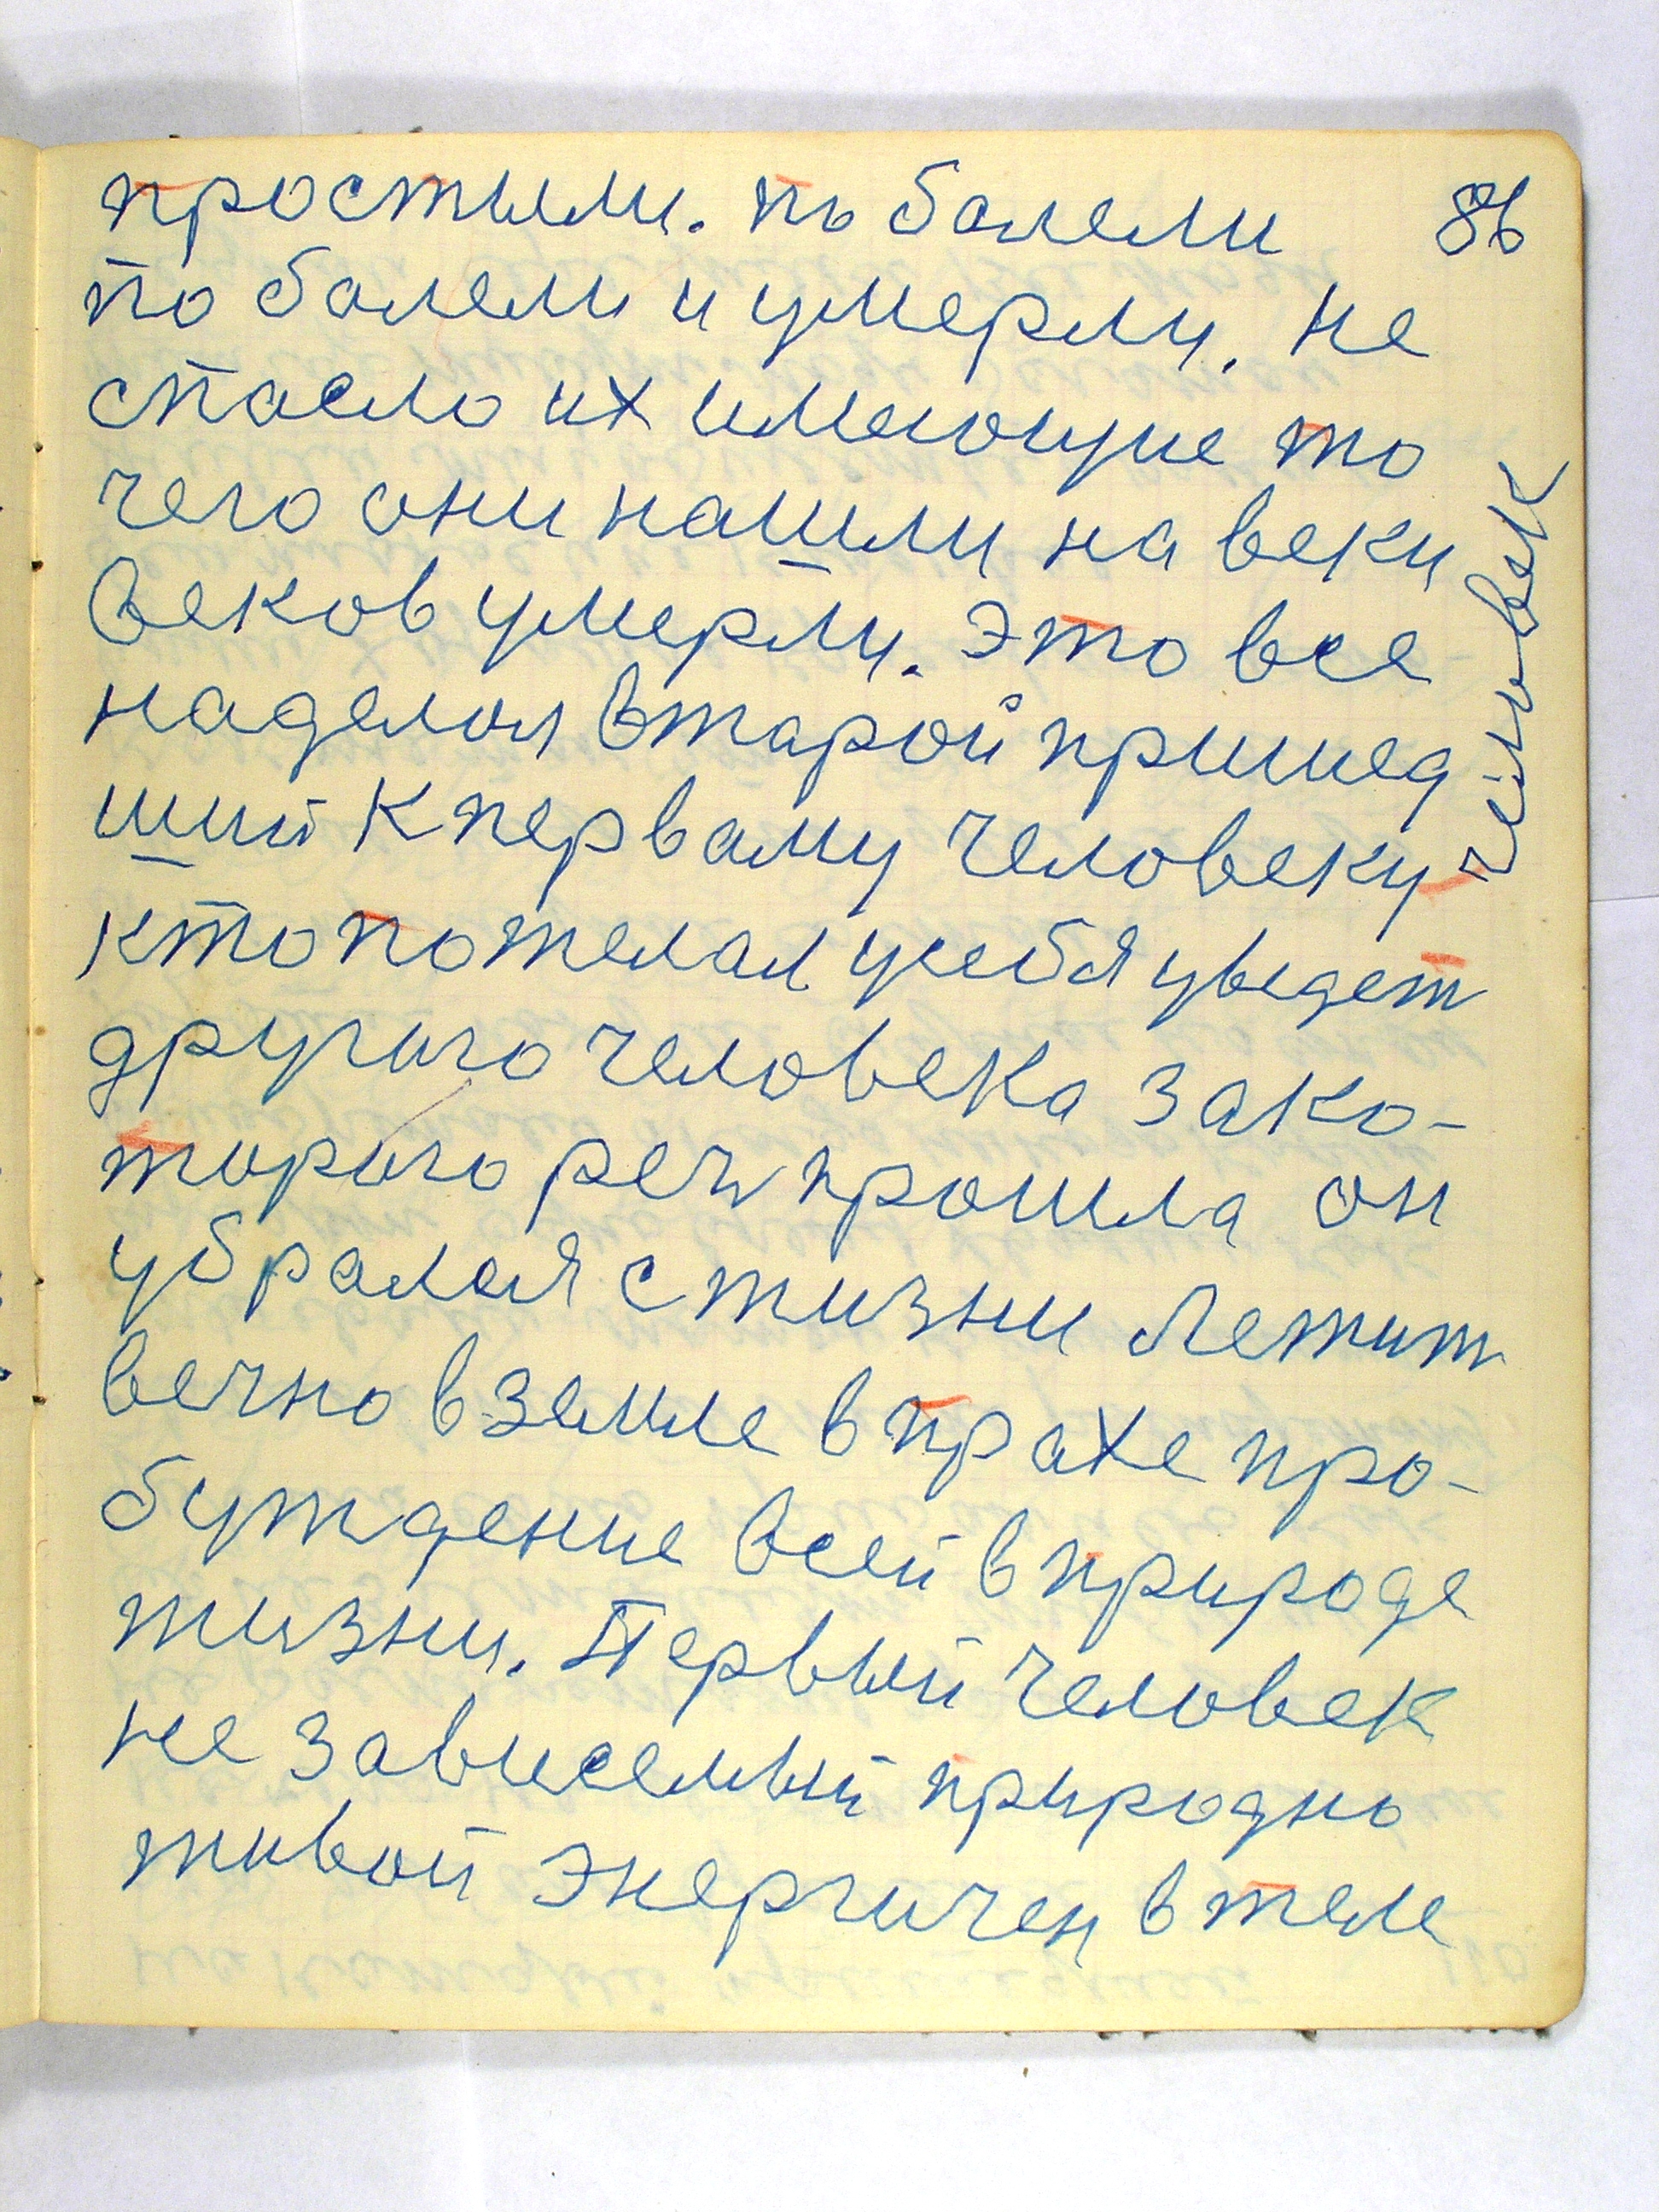 простыли. по болели
86
по болели и умерли. не
спасло их имеющие то
чего они нашли на веки
веков умерли. Это все
наделал втарой пришед
ший к перваму человеку
человек
кто пожелал усебя уведет
другого человека зако-
торого реч прошла он
убрался с жизни Лежит
вечно в земле в прахе про-
буждение всей в природе
жизни. Первый человек
не зависемый природно
живой энергичен в теле